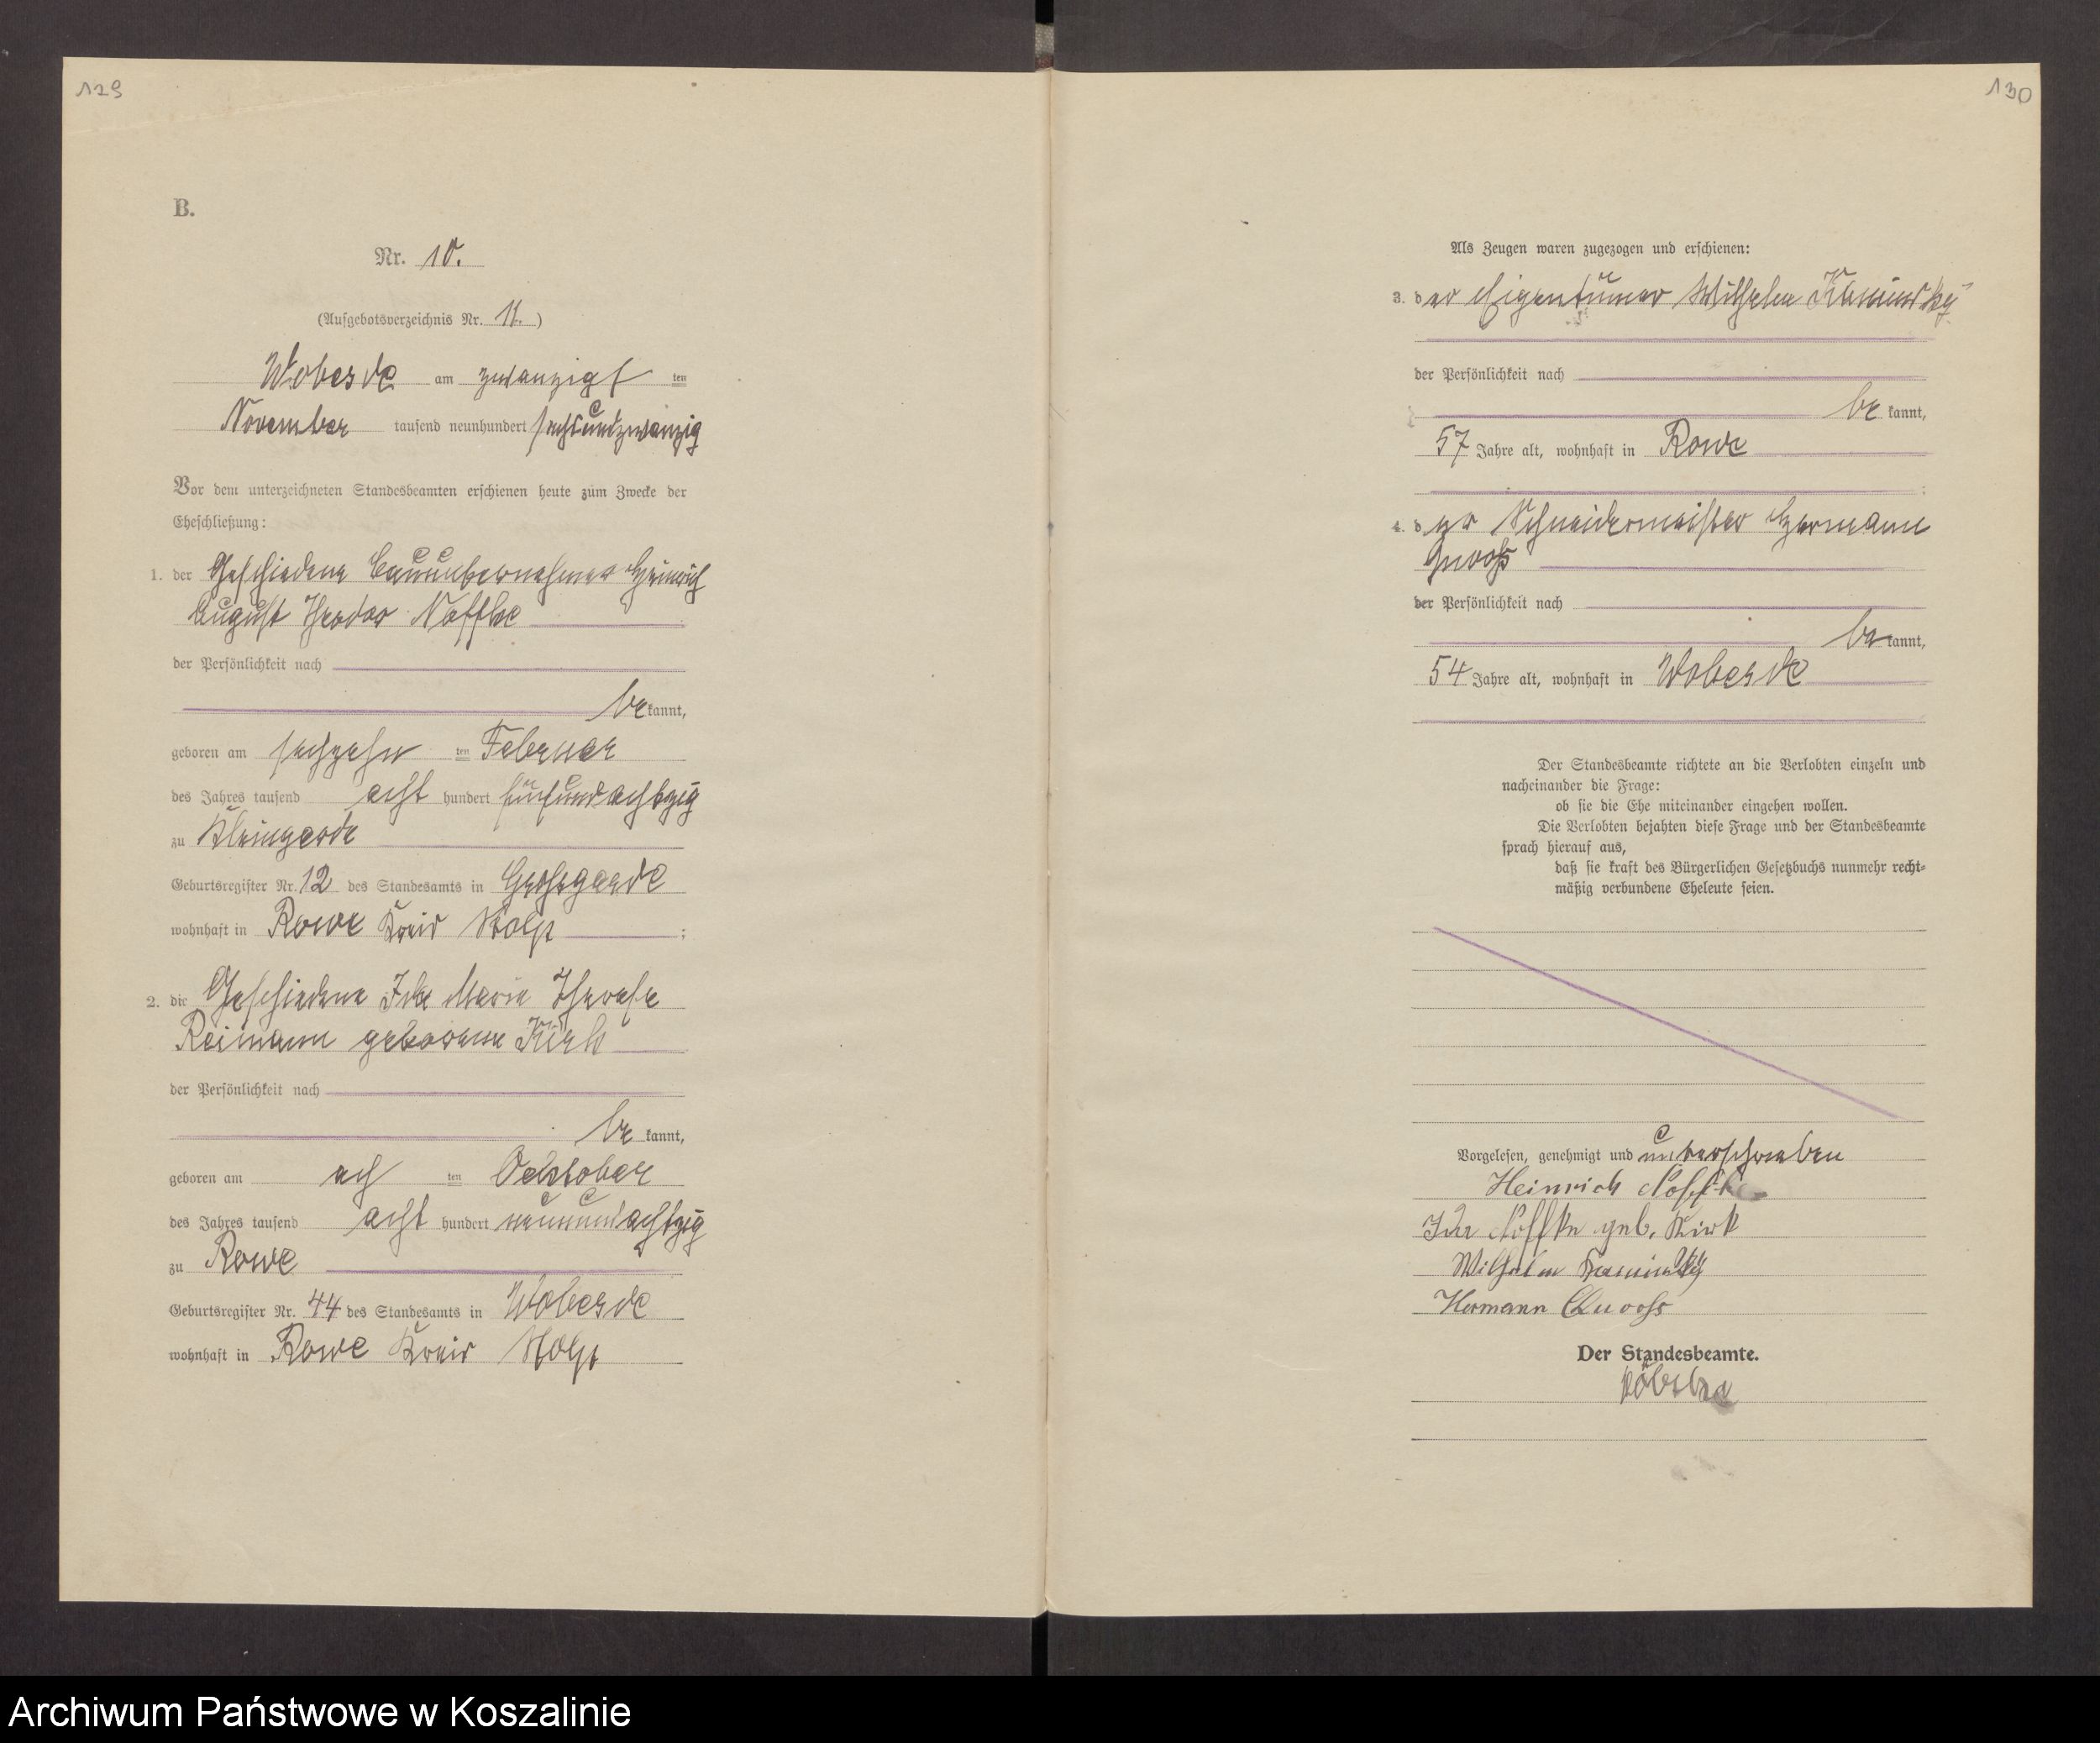 129
130
B.
Nr. 10.
(Aufgebotsverzeichnis Nr. 11.)
Wobesde am zwanzigsten
November tausend neunhundert sechsundzwanzig
Vor dem unterzeichneten Standesbeamten erschienen heute zum Zwecke der
Eheschließung:
1. der Geschiedene Bauunternehmer Heinrich
August Theodor Noffke
der Persönlichkeit nach
bekannt,
geboren am sechzehn ten Februar
des Jahres tausend acht hundert fünfundachtzig
zu Kleingarde
Geburtsregister Nr. 12 des Standesamts in Großgarde
wohnhaft in Rowe Kreis Stolp ;
2. die Geschiedene Ida Marie Therese
Reimann geborene Kirk
der Persönlichkeit nach
be kannt,
geboren am ach ten Ocktober
des Jahres tausend acht hundert neunundachtzig
zu Rowe
Geburtsregister Nr. 44 des Standesamts in Wobesde
wohnhaft in Rowe Kreis Stolp
Als Zeugen waren zugezogen und erschienen:
3. der Eigentümer Wilhelm Kaminsky
der Persönlichkeit nach
be kannt,
57 Jahre alt, wohnhaft in Rowe
;
4. der Schneidermeister Hermann
Quooß
der Persönlichkeit nach
bekannt,
54 Jahre alt, wohnhaft in Wobesde
Der Standesbeamte richtete an die Verlobten einzeln und
nacheinander die Frage:
ob sie die Ehe miteinander eingehen wollen.
Die Verlobten bejahten diese Frage und der Standesbeamte
sprach hierauf aus,
daß sie kraft des Bürgerlichen Gesetzbuchs nunmehr recht-
mäßig verbundene Eheleute seien.
Vorgelesen, genehmigt und unterschrieben
Heinrich Noffke
Ida Noffke geb. Kirk
Wilhelm Kaminsky
Hermann Quooß
Der Standesbeamte.
Archiwum Państwowe w Koszalinie